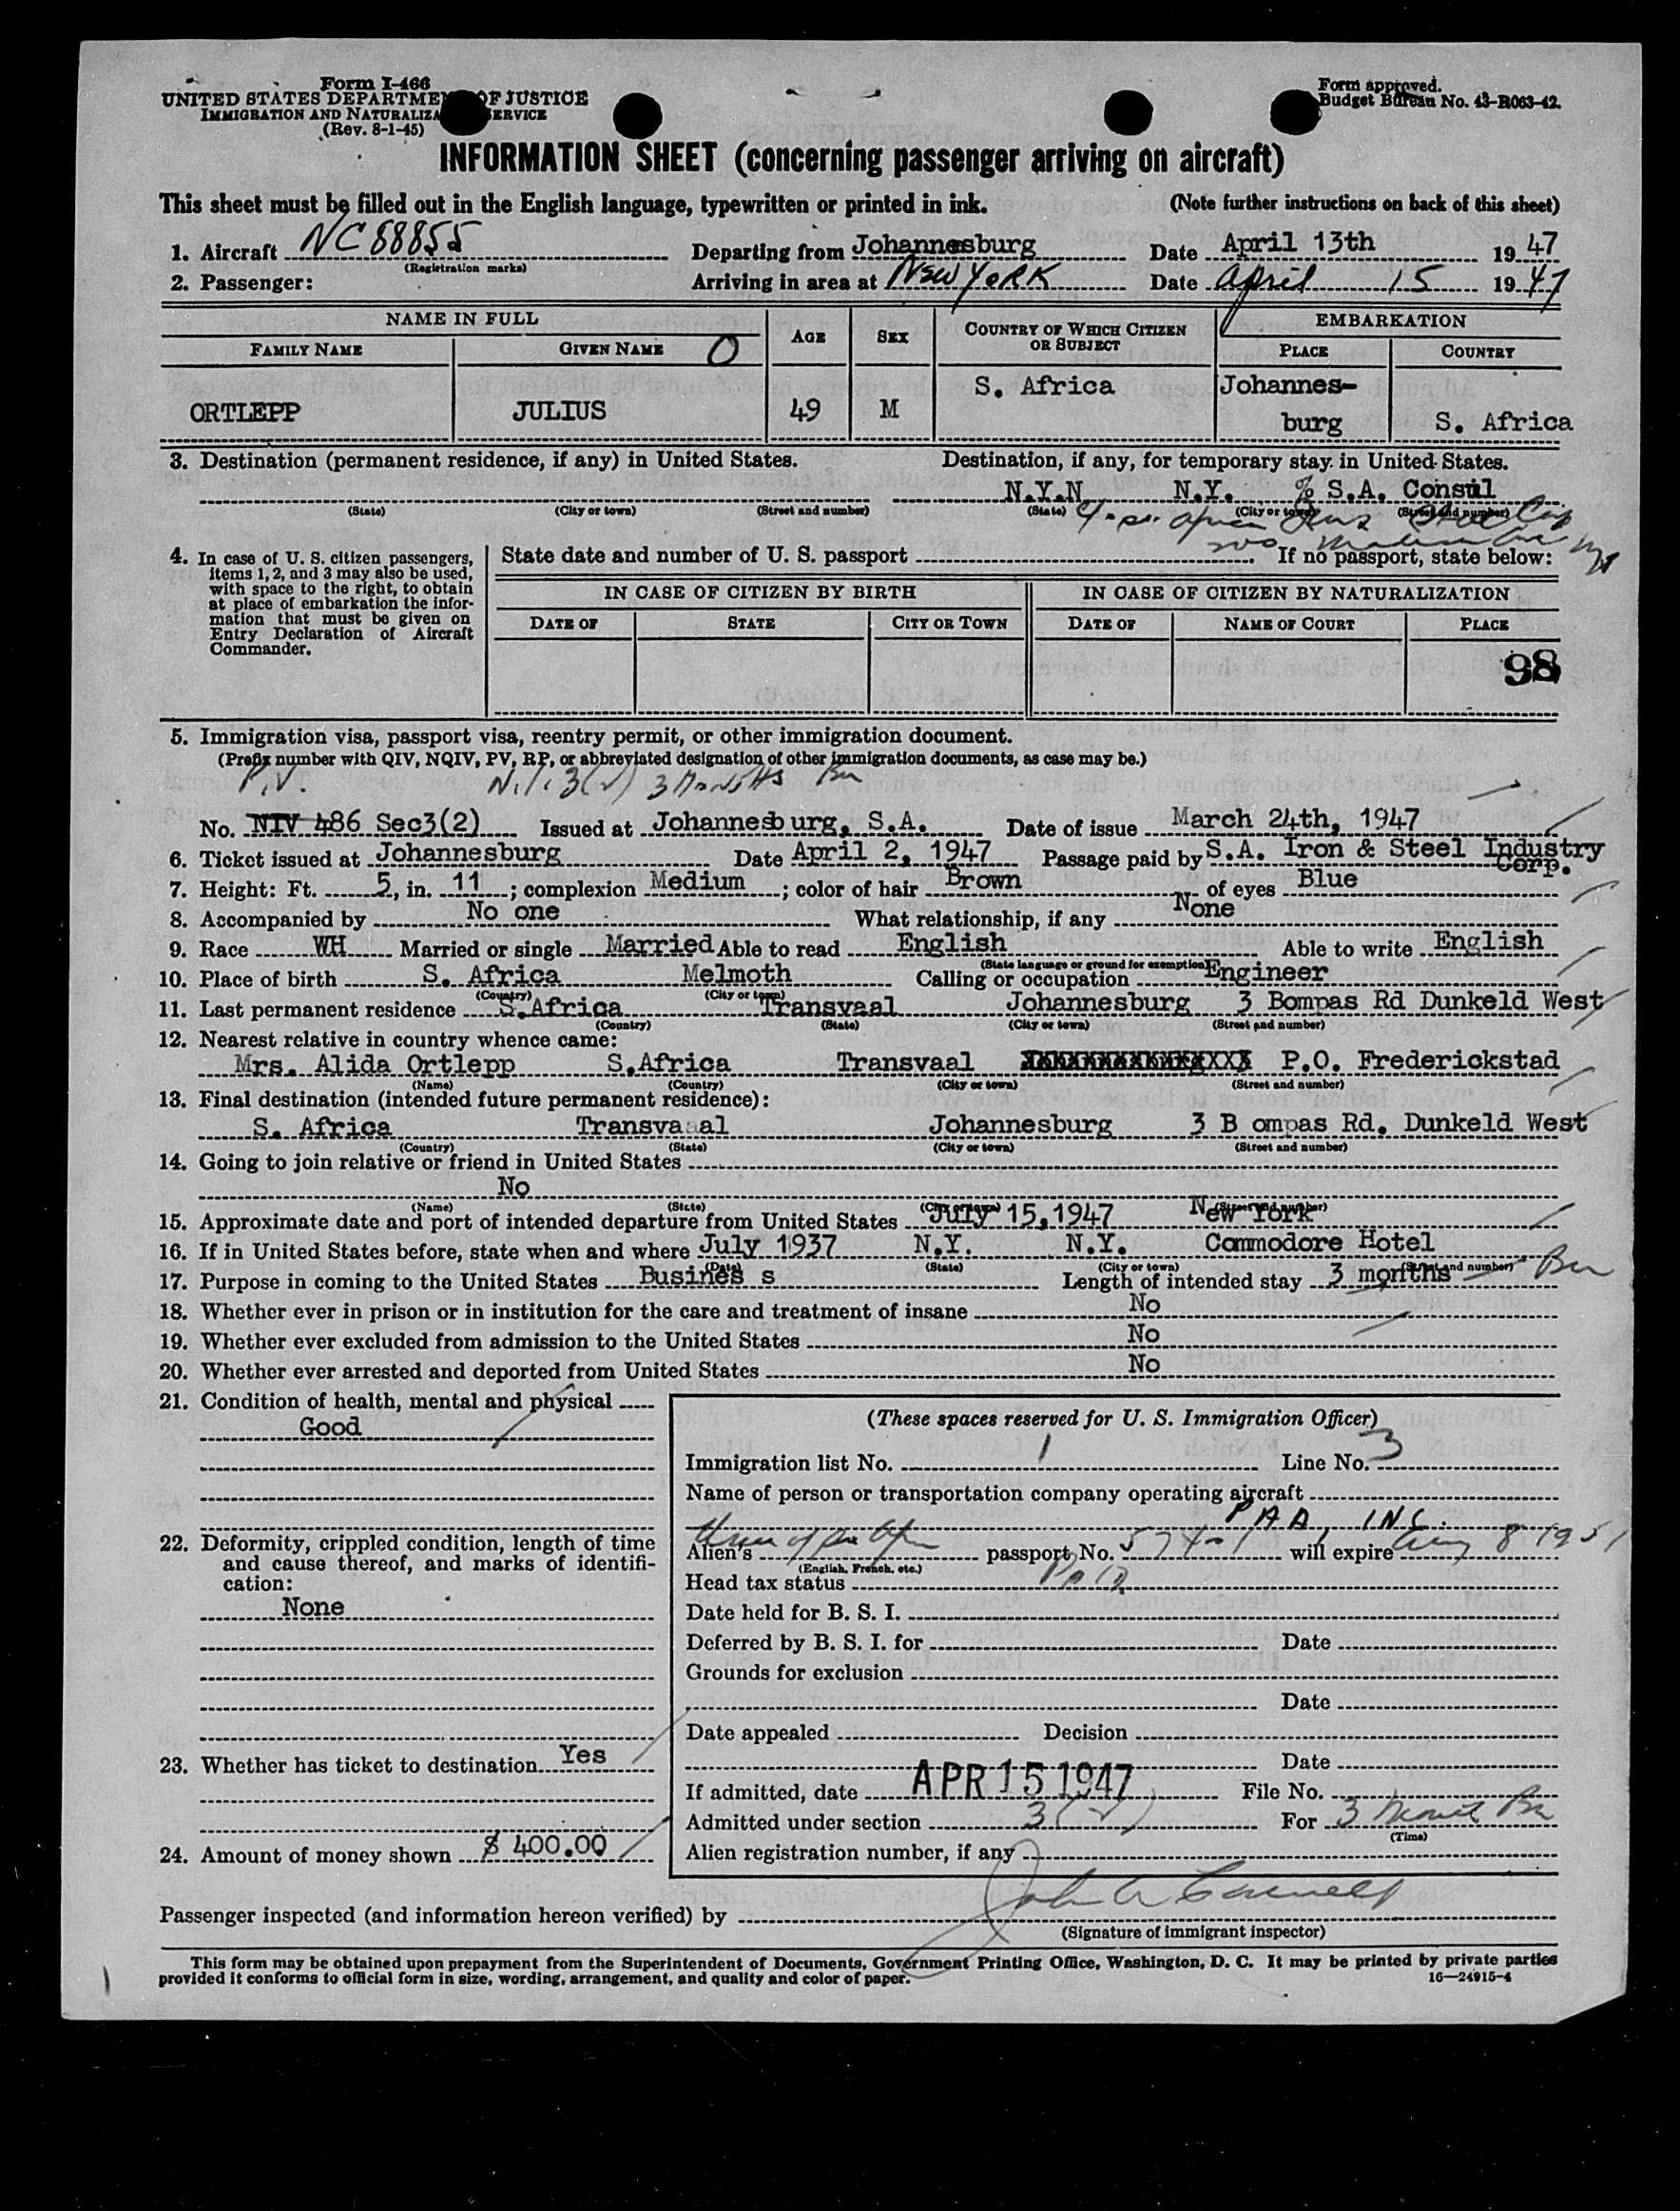 Form I-466
UNITED STATES DEPARTMENT OF JUSTICE
IMMIGRATION AND NATURALIZA ERVICE
(Rev. 8-1-45)
Form approved.
Budget Bureau No. 43-R063-42.
INFORMATION SHEET (concerning passenger arriving on aircraft)
This sheet must be filled out in the English language, typewritten or printed in ink. (Note further instructions on back of this sheet)
1. Aircraft NC 88855 Departing from Johannesburg Date April 13th 1947
(Registration marks)
2. Passenger: Arriving in area at New York Date April 15 1947
NAME IN FULL AGE SEX COUNTRY OF WHICH CITIZEN OR SUBJECT EMBARKATION
FAMILY NAME GIVEN NAME O PLACE COUNTRY
ORTLEPP JULIUS 49 M S. Africa Johannes-burg S. Africa
3. Destination (permanent residence, if any) in United States. Destination, if any, for temporary stay in United States.
N.Y.N N.Y. % S.A. Consul
(State) (City or town) (Street and number) (State) (City or town) (Street and number)
4. In case of U. S. citizen passengers, items 1, 2, and 3 may also be used, with space to the right, to obtain at place of embarkation the information that must be given on Entry Declaration of Aircraft Commander.
State date and number of U. S. passport If no passport, state below:
IN CASE OF CITIZEN BY BIRTH IN CASE OF CITIZEN BY NATURALIZATION
DATE OF STATE CITY OR TOWN DATE OF NAME OF COURT PLACE
98
5. Immigration visa, passport visa, reentry permit, or other immigration document.
(Prefix number with QIV, NQIV, PV, RP, or abbreviated designation of other immigration documents, as case may be.)
P.V. 3(2) 3 Months
No. NIV 486 Sec3(2) Issued at Johannesburg, S.A. Date of issue March 24th, 1947
6. Ticket issued at Johannesburg Date April 2, 1947 Passage paid by S.A. Iron & Steel Industry Corp.
7. Height: Ft. 5, in. 11; complexion Medium; color of hair Brown of eyes Blue
8. Accompanied by No one What relationship, if any None
9. Race WH Married or single Married Able to read English Able to write English
(State language or ground for exemption)
10. Place of birth S. Africa Melmoth Calling or occupation Engineer
(Country) (City or town)
11. Last permanent residence S.Africa Transvaal Johannesburg 3 Bompas Rd Dunkeld West
(Country) (State) (City or town) (Street and number)
12. Nearest relative in country whence came:
Mrs. Alida Ortlepp S.Africa Transvaal P.O. Frederickstad
(Name) (Country) (City or town) (Street and number)
13. Final destination (intended future permanent residence):
S. Africa Transvaal Johannesburg 3 B ompas Rd. Dunkeld West
(Country) (State) (City or town) (Street and number)
14. Going to join relative or friend in United States
No
(Name) (State) (City or town) (Street and number)
15. Approximate date and port of intended departure from United States July 15,1947 New York
16. If in United States before, state when and where July 1937 N.Y. N.Y. Commodore Hotel
(Date) (State) (City or town) (Street and number)
17. Purpose in coming to the United States Busines s Length of intended stay 3 months
18. Whether ever in prison or in institution for the care and treatment of insane No
19. Whether ever excluded from admission to the United States No
20. Whether ever arrested and deported from United States No
21. Condition of health, mental and physical
Good
22. Deformity, crippled condition, length of time and cause thereof, and marks of identification:
None
23. Whether has ticket to destination Yes
24. Amount of money shown $ 400.00
(These spaces reserved for U. S. Immigration Officer)
Immigration list No. 1 Line No. 3
Name of person or transportation company operating aircraft
PAA, INC.
Alien's Union of So Afr passport No. 57401 will expire Aug 8 1951
(English, French, etc.)
Head tax status Paid
Date held for B. S. I.
Deferred by B. S. I. for Date
Grounds for exclusion
Date
Date appealed Decision
Date
If admitted, date APR 15 1947 File No.
Admitted under section 3(2) For 3
(Time)
Alien registration number, if any
Passenger inspected (and information hereon verified) by
(Signature of immigrant inspector)
This form may be obtained upon prepayment from the Superintendent of Documents, Government Printing Office, Washington, D. C. It may be printed by private parties
provided it conforms to official form in size, wording, arrangement, and quality and color of paper. 16—24915-4